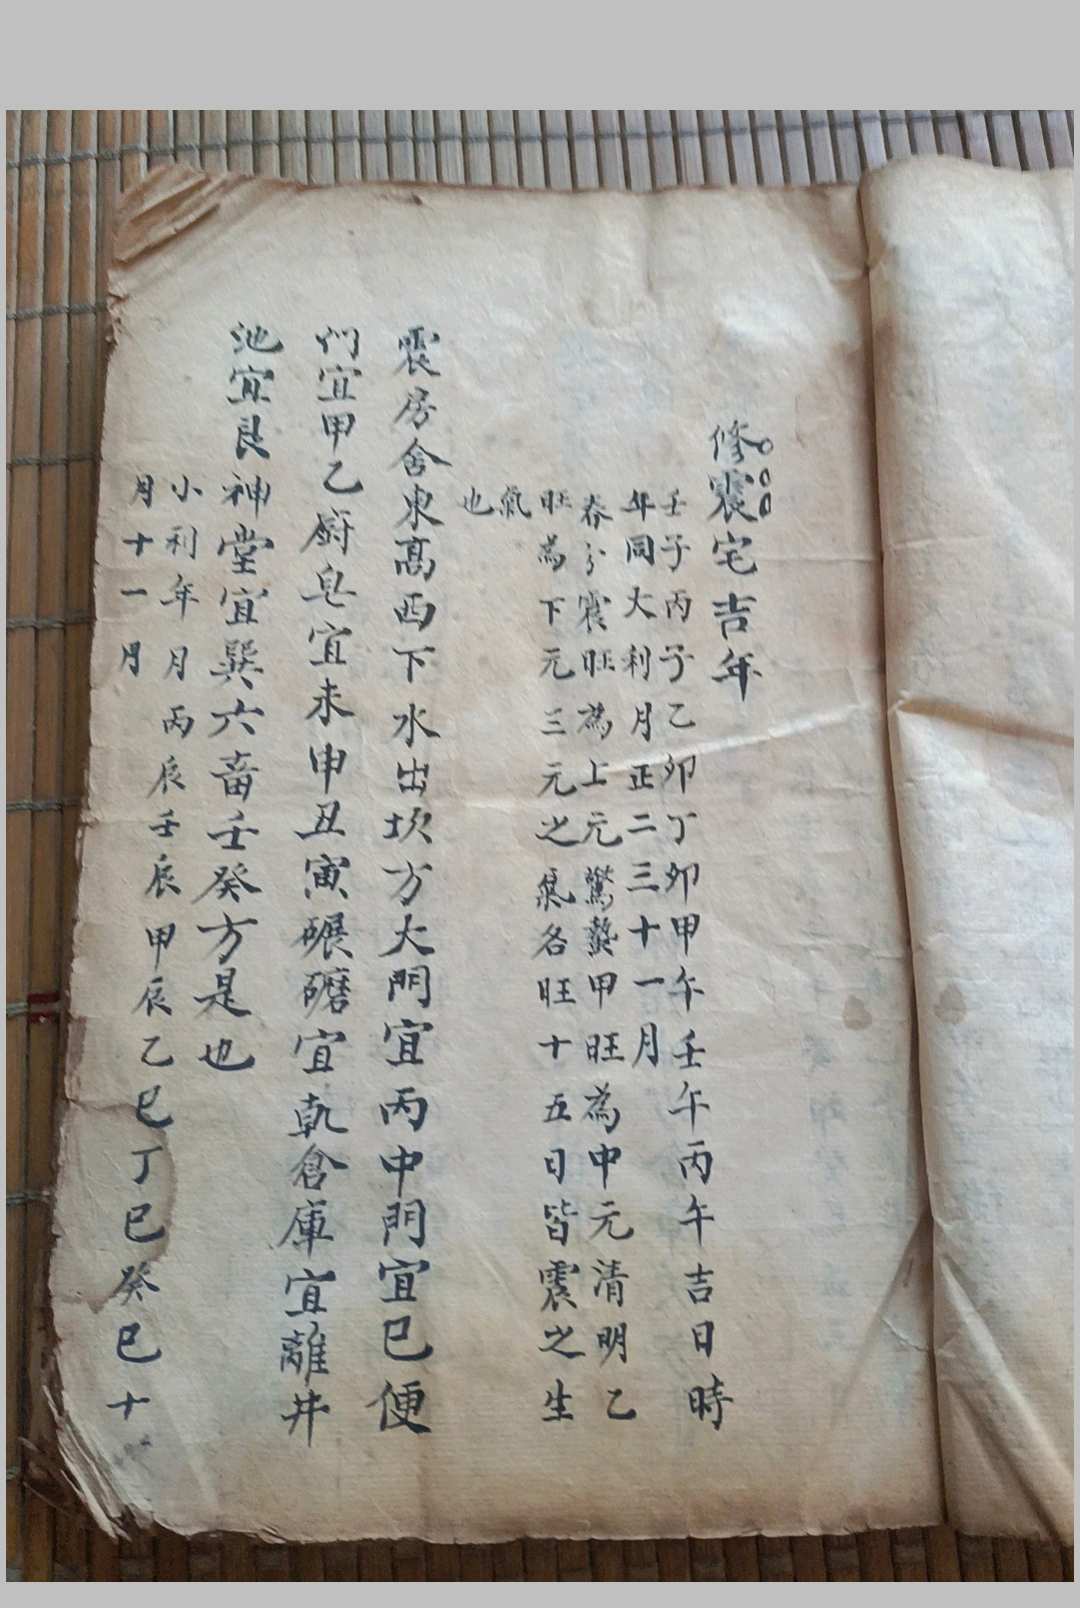 修震宅吉年
壬子丙子乙卯丁卯甲午壬午丙午吉日時
年同大利月正二三十一月
春分震旺為上元驚蟄甲旺為中元清明乙
旺為下元三元之氣各旺十五日皆震之生
氣
也
震房舍東高西下水出坎方大門宜丙中門宜巳便
門宜甲乙厨皂宜未申丑寅碾磨宜乹倉庫宜離井
池宜艮神堂宜巽六畜壬癸方是也
小利年月丙辰壬辰甲辰乙巳丁巳癸巳十
月十一月